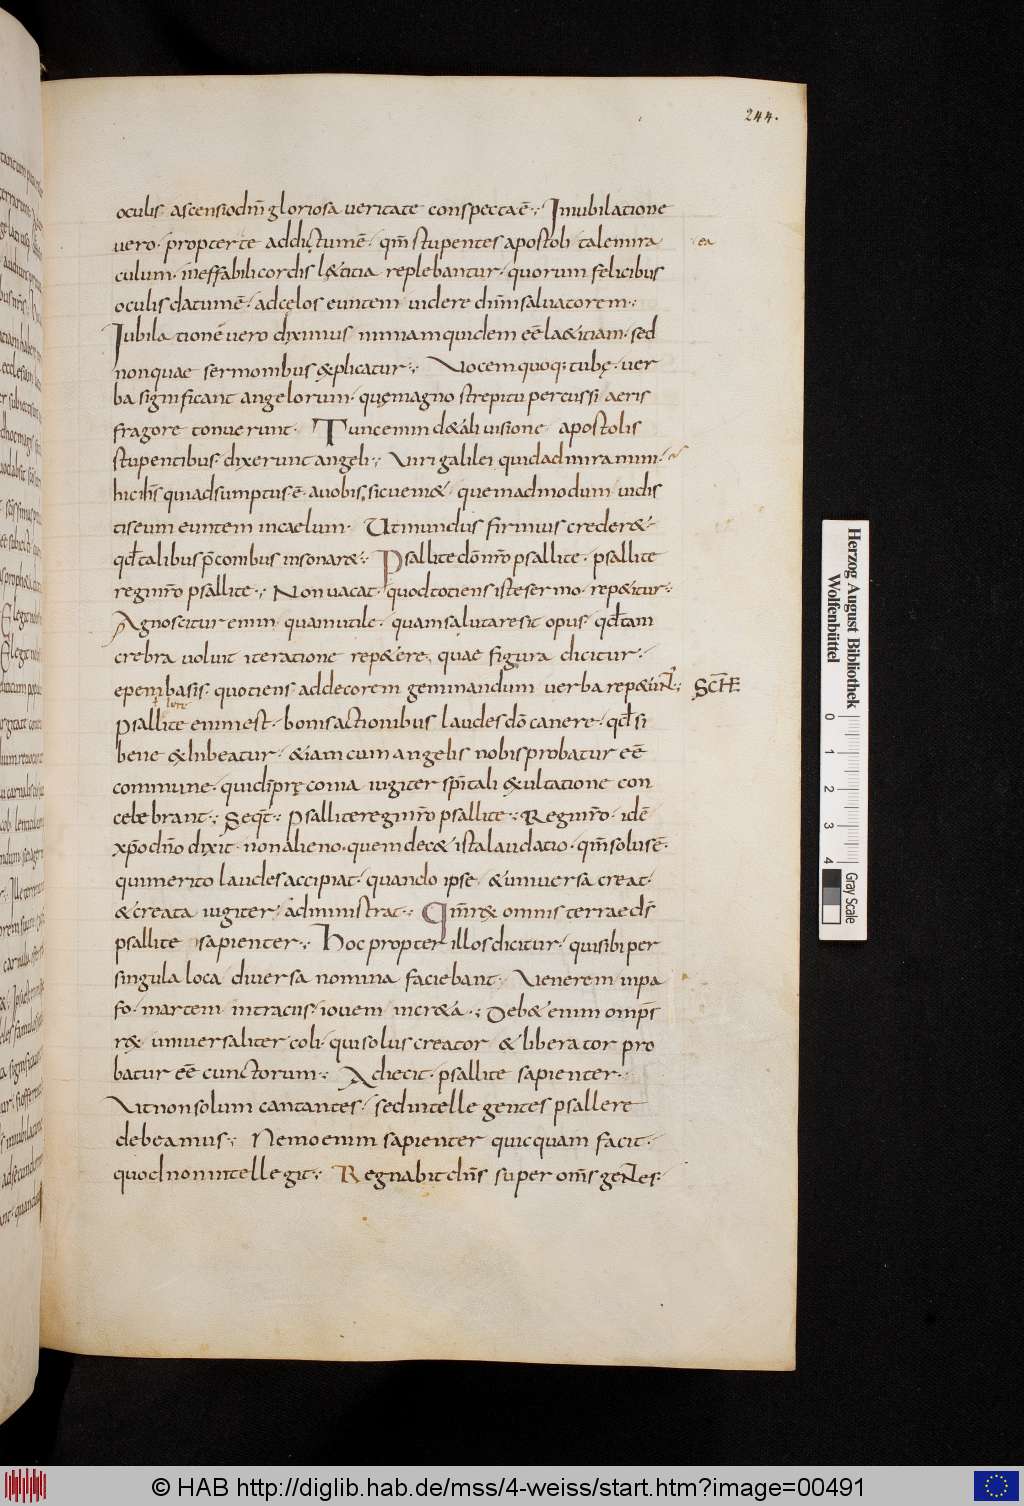 244.
oculis· ascensio dn̄i gloriosa veritate conspecta ē·, In iubilatione
vero· propter te addictum ē· qm̄ stupentes apostoli tale mira
ea
culum· ineffabili cordis lętitia replebantur· quorum felicibus
oculis datum ē· ad celos euntem videre dn̄m salvatorem·,
Iubilationē vero diximus nimiam quidem eē lae&itiam· sed
non quae sermonibus explicatur·, Vocem quoq; tubę· ver
ba significant angelorum· quę magno strepitu percussi aeris
fragore convenerunt· Tunc enim de tali visione apostolis
stupentibus· dixerunt angeli·, Viri galilei quid admiramini·
hic ih̄s qui adsumptus ē· a vobis, sic veni&· quemadmodum vidis
tis eum euntem in caelum· Ut mundus firmius creder&·
qđ talibus p̄conibus insonar&·, Psallite dō nr̄o psallite· psallite
regi nr̄o psallite·, Non vacat· quod totiens iste sermo· rep&itur·,
Agnoscitur enim· quam utile· quam salutare sit opus· qđ tam
crebra voluit iteratione rep&ere, quae figura dicitur·,
epembasis· quotiens ad decorem geminandum verba rep&unt·,
Psallite enim est· bonis actionibus laudes dō canere· qđ si
bene exhibeatur· &iam cum angelis nobis probatur eē
commune· qui dī pręconia iugiter sp̄itali exultatione con
celebrant·, Seqt̄· Psallite regi nr̄o psallite·, Regi nr̄o· idē
xp̄o dn̄o dixit· non alieno· quem dec& ista laudatio· qm̄ solus ē·
qui merito laudes accipiat· quando ipse & universa creat·
& creata iugiter administrat·, Qm̄ rex omnis terrae dś
psallite sapienter·, Hoc propter illos dicitur· qui sibi per
singula loca diversa nomina faciebant· Venerem in pa
fo· martem in traciis· iovem in cr&a·, Deb& enim omp̄s
rex universaliter coli· qui solus creator & liberator pro
batur eē cunctorum·, Adiecit· psallite sapienter·
Vt non solum cantantes· sed intellegentes psallere
debeamus·, Nemo enim sapienter quicquam facit·
quod non intellegit·, Regnabit dn̄s super om̄s gentes·
Herzog August Bibliothek
Wolfenbüttel
0 1 2 3 4
Gray Scale
© HAB http://diglib.hab.de/mss/4-weiss/start.htm?image=00491